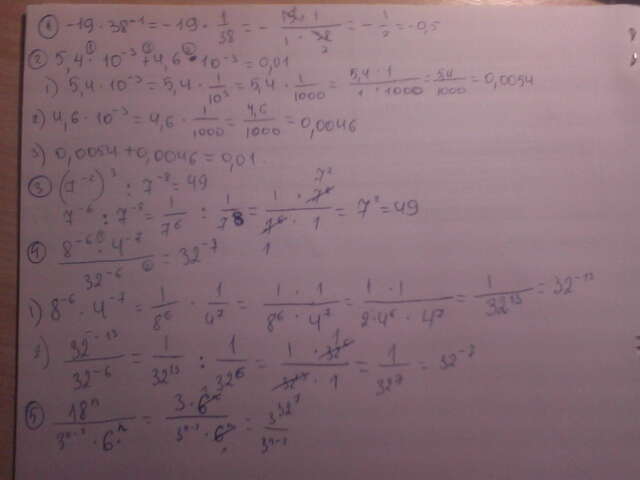 ① -19 · 38⁻¹ = -19 · 1/38 = - (19 · 1)/(1 · 38) = - 1/2 = -0,5
② 5,4 · 10⁻³ + 4,6 · 10⁻³ = 0,01
1) 5,4 · 10⁻³ = 5,4 · 1/10³ = 5,4 · 1/1000 = (5,4 · 1)/(1 · 1000) = 5,4/1000 = 0,0054
2) 4,6 · 10⁻³ = 4,6 · 1/1000 = 4,6/1000 = 0,0046
3) 0,0054 + 0,0046 = 0,01.
③ (7⁻²)³ : 7⁻⁸ = 49
7⁻⁶ : 7⁻⁸ = 1/7⁶ : 1/7⁸ = (1 · 7⁸)/(7⁶ · 1) = 7² = 49
④ (8⁻⁶ · 4⁻⁷)/32⁻⁶ = 32⁻⁷
1) 8⁻⁶ · 4⁻⁷ = 1/8⁶ · 1/4⁷ = (1 · 1)/(8⁶ · 4⁷) = (1 · 1)/(2·4⁶ · 4⁷) = 1/32¹³ = 32⁻¹³
2) 32⁻¹³/32⁻⁶ = 1/32¹³ : 1/32⁶ = (1 · 32⁶)/(32¹³ · 1) = 1/32⁷ = 32⁻⁷
⑤ 18ⁿ/(3ⁿ⁻² · 6ⁿ) = (3 · 6ⁿ)/(3ⁿ⁻² · 6ⁿ) =